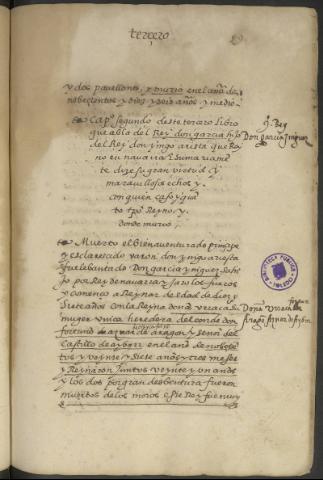 terçero
y dos pavellons, y murio en el año de
nobeçientos y diez y seis años y medio.
Capº segundo deste terçero libro
que abla del Rey don garcia hijo
del Rey don yñigo arista que Rey
no en navarra E Sumariame
te dize su gran virtud y
maravillosos echos y
con quien caso y qua
to tpo Reyno y
donde murio
Rey
Don garcia yñiguez
Muerto el bienaventurado prinçipe
y esclareçido varon don yñigo arista
fue lebantado Don garcia yñiguez Su hi
jo por Rey de navarra y juro los fueros
y començo a Reynar de edad de diez y
siete años con la Reyna doña vrraca su
muger vnica heredera del conde don
fortuño de aragon y señor del
Castillo de aybar en el año de nobeçi
tos y veynte y siete años y tres meses
y Reynaron juntos veynte y un anos
y los dos por gran desbentura fueron
muertos de los moros este Rey fue muy
Doña vrraca
BIBLIOTECA PUBLICA
TOLEDO